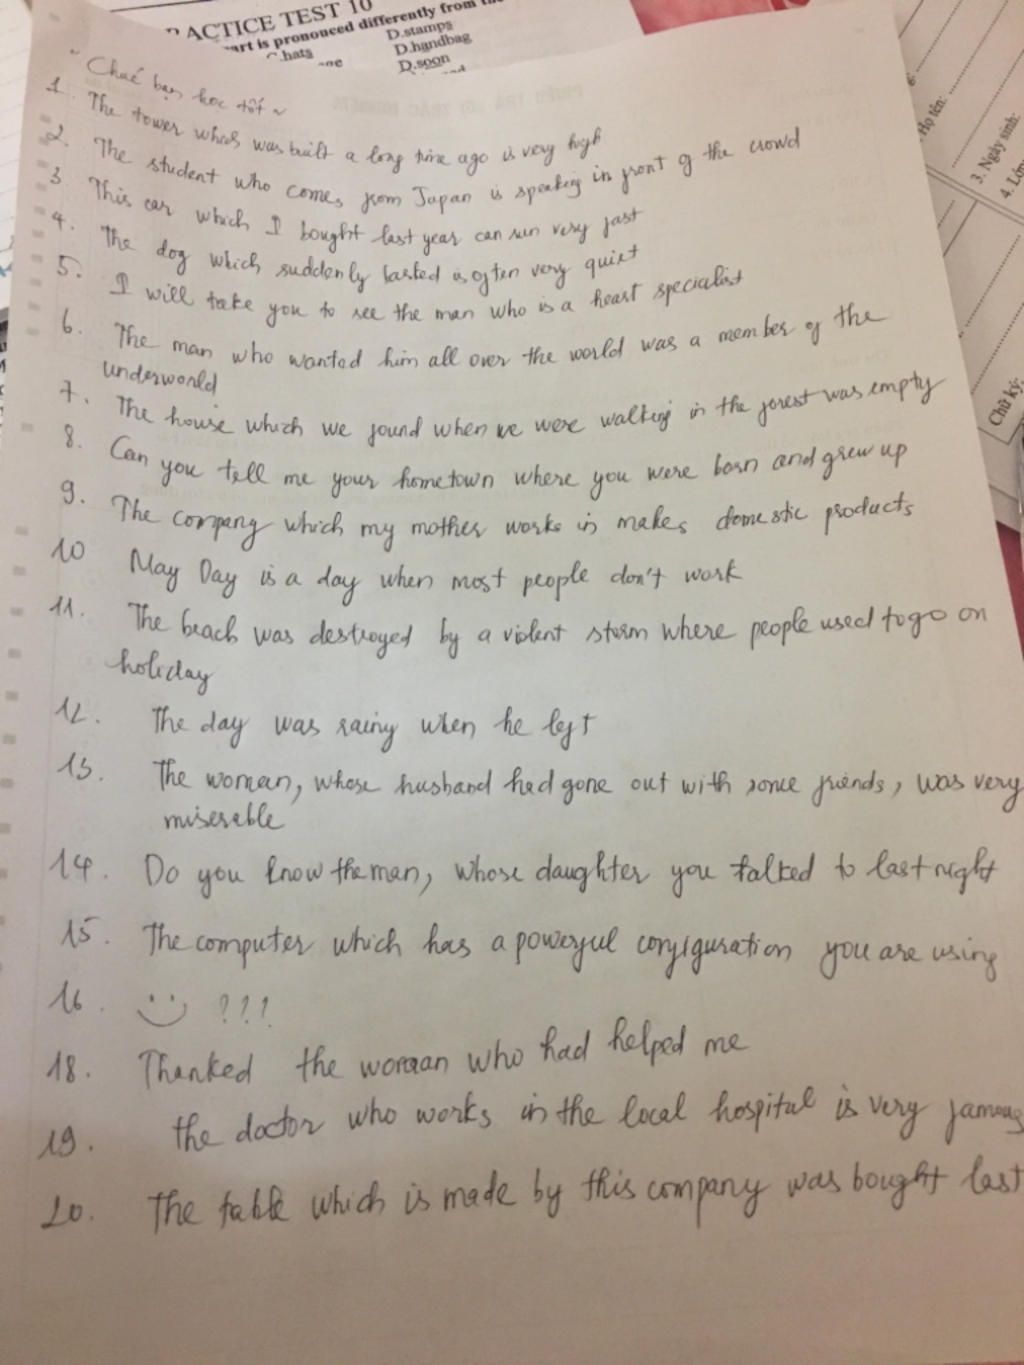 PRACTICE TEST 10
art is pronouced differently from the
hats D.stamps
D.handbag
D.soon
Họ tên:
3. Ngày sinh:
4. Lớp
Chữ ký:
~ Chúc bạn học tốt ~
1. The tower which was built a long time ago is very high
2. The student who comes from Japan is speaking in front of the crowd
3. This car which I bought last year can run very fast
4. The dog which suddenly barked is often very quiet
5. I will take you to see the man who is a heart specialist
6. The man who wanted him all over the world was a member of the
underworld
7. The house which we found when we were walking in the forest was empty
8. Can you tell me your hometown where you were born and grew up
9. The company which my mother works in makes domestic products
10 May Day is a day when most people don't work
11. The beach was destroyed by a violent storm where people used to go on
holiday
12. The day was rainy when he left
13. The woman, whose husband had gone out with some friends, was very
miserable
14. Do you know the man, whose daughter you talked to last night
15. The computer which has a powerful configuration you are using
16. ???
18. Thanked the woman who had helped me
19. the doctor who works in the local hospital is very famous
20. The table which is made by this company was bought last